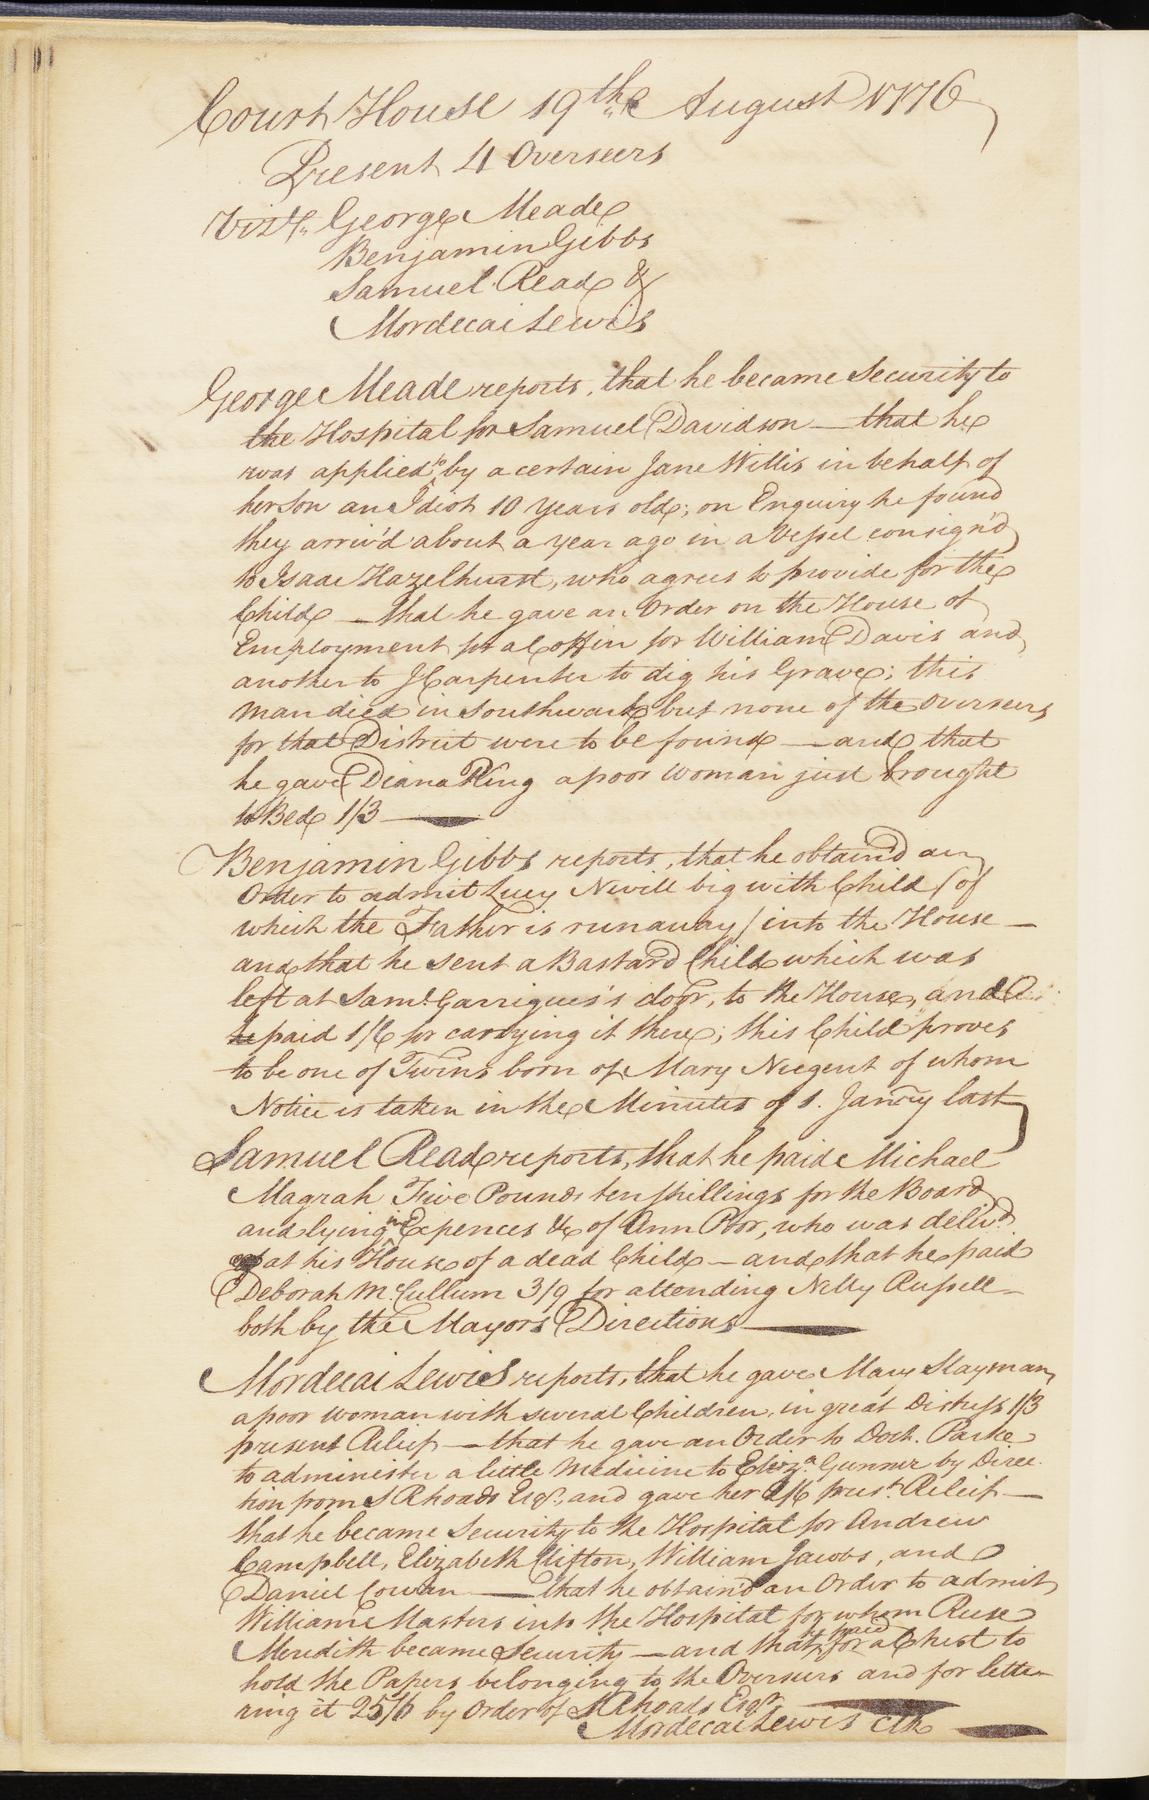 Court House 19th August 1776
Present 4 Overseers
Vizt. George Meade
Benjamin Gibbs
Samuel Read &
Mordecai Lewis
George Meade reports, that he became Security to
the Hospital for Samuel Davidson — that he
was applied to by a certain Jane Willis in behalf of
her Son an Idiot 10 Years old; on Enquiry he found
they arriv'd about a year ago in a Vessel consign'd
to Isaac Hazelhurst, who agrees to provide for the
Child — that he gave an Order on the House of
Employment for a Coffin for William Davis and
another to J Carpenter to dig his Grave; this
man died in Southwark but none of the Overseers
for that District were to be found — and that
he gave Diana King a poor woman just brought
to Bed 1/3 —
Benjamin Gibbs reports, that he obtain'd an
Order to admit Lucy Nevill big with Child (of
which the Father is runaway) into the House —
and that he sent a Bastard Child which was
left at Saml. Garrigues's door, to the House, and
he paid 1/6 for carrying it there; this Child proves
to be one of Twins born of Mary Niegent of whom
Notice is taken in the Minutes of 1. Janry last
Samuel Read reports, that he paid Michael
Magrah Five Pounds ten shillings for the Board
and lying in Expences &c of Ann Poor, who was delivd
at his House of a dead Child — and that he paid
Deborah McCullum 3/9 for attending Nelly Russell —
both by the Mayors Directions —
Mordecai Lewis reports, that he gave Mary Slayman
a poor woman with several Children, in great Distress 1/3
present Releif — that he gave an Order to Doct. Parke
to administer a little Medicine to Eliza. Gunner by Direc
tion from S Rhoads Esqr. and gave her 2/6 prest. Releif —
that he became Security to the Hospital for Andrew
Campbell, Elizabeth Clifton, William Jacobs, and
Daniel Cowan — that he obtain'd an Order to admit
William Masters into the Hospital for whom Reese
Meredith became Security — and that he paid for a Chest to
hold the Papers belonging to the Overseers and for lette
ring it 25/6 by Order of S Rhoads Esqr.
Mordecai Lewis Clk